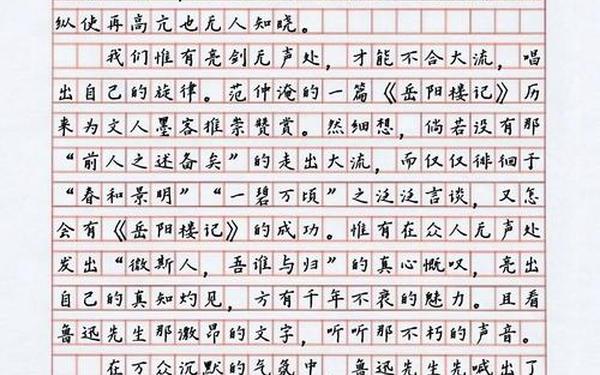 纵使再高亢也无人知晓。
我们惟有亮剑无声处，才能不合大流，唱
出自己的旋律。范仲淹的一篇《岳阳楼记》历
来为文人墨客推崇赞赏。然细想，倘若没有那
“前人之述备矣”的走出大流，而仅仅徘徊于
“春和景明”“一碧万顷”之泛泛言谈，又怎
会有《岳阳楼记》的成功。惟有在众人无声处
发出“微斯人，吾谁与归”的真心慨叹，亮出
自己的真知灼见，方有千年不衰的魅力。且看
鲁迅先生那激昂的文字，听听那不朽的声音。
在万众沉默的气氛中，鲁迅先生先喊出了